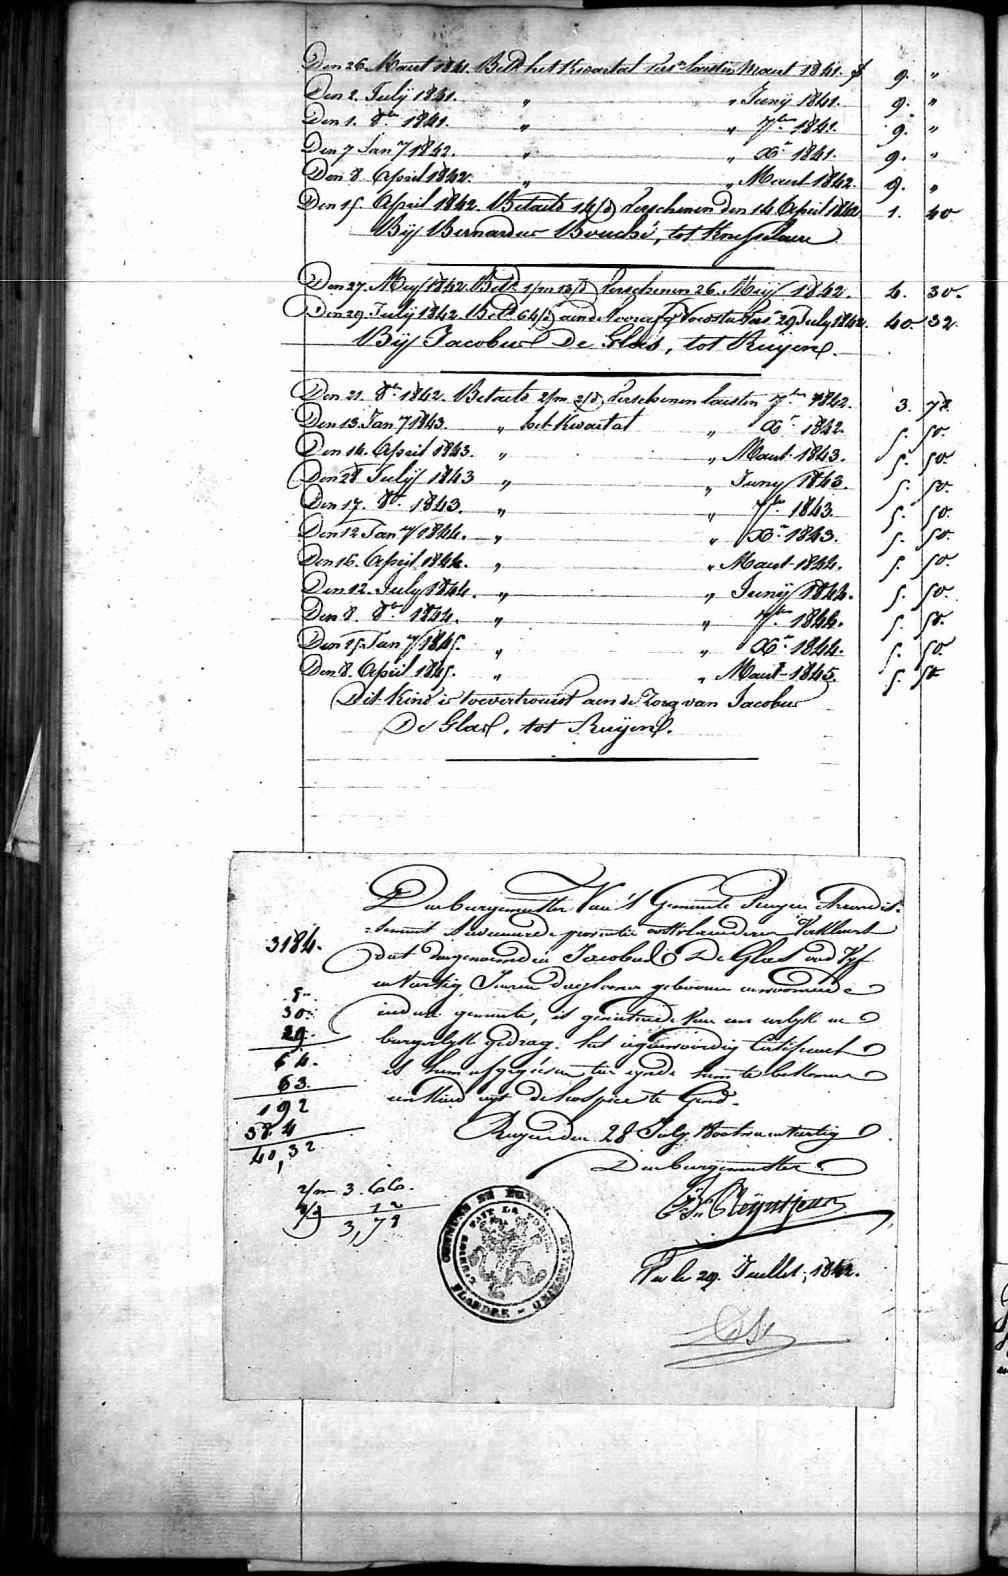 Den 26. Maert 1841. Bett het Kwartal Vers. laesten Maert 1841. f 9. "
Den 2. Julÿ 1841. " " Junÿ 1841. 9. "
Den 1. 8bre 1841. " " 7bre 1841. 9. "
Den 7 Jany 1842. " " Xr 1841. 9. "
Den 8 April 1842. " " Maert 1842. 9. "
Den 15. April 1842. Betaelt 14/d Verschenen den 14 April 1842 1. 40
Bÿ Bernardus Bouché, tot
Den 27. Meÿ 1842. Bett 1/m 13/d Verschenen 26. Meÿ 1842. 4. 30.
Den 29 Julÿ 1842. Bett 64/d 29 July 1842. 40 32
Bÿ Jacobus De Glas, tot Ruÿen.
Den 21. 8bre 1842. Betaelt 2/m 2/d Verschenen laesten 7bre 1842. 3. 78.
Den 13. Jany 1843. " het Kwartal " Xr 1842. 5. 50.
Den 14. April 1843. " " Maert 1843. 5. 50.
Den 28 Julÿ 1843 " " Juny 1843. 5. 50.
Den 17. 8bre 1843. " " 7bre 1843. 5. 50.
Den 12 Jany 1844. " " Xr 1843. 5. 50.
Den 16. April 1844. " " Maert 1844. 5. 50.
Den 12. July 1844. " " Junÿ 1844. 5. 50.
Den 8. 8bre 1844. " " 7bre 1844. 5. 50.
Den 15. Jany 1845. " " Xr 1844. 5. 50
Den 8. April 1845. " " Maert 1845. 5. 50
Dit Kind is toevertrouwt aen de Zorg van Jacobus
De Glas, tot Ruÿen.
Den burgemeester Van 't Gemeente Ruyen Arrondis-
-sement Audenaerde provintie oostvlaenderen Verklaert
3184.
dat den genaemden Jacobus De Glas oud Vyf
en Veertig Jaeren daglooner geboren en woonende
in deze gemeente, is van een eerlyk en
burgerlyk gedrag. tot tegenwoordig Certificaet
is hem afgegeven ten eynde hem te bekomen
een Kind uyt de hospice te Gend.
Ruyen den 28 July 18 twee en Veertig
Den burgemeester
5
30
29
64.
63.
192
384
40,32
2/m 3.66.
2/d 12
3,78
COMMUNE DE RUYEN
FLANDRE - ORIENTALE
L'UNION FAIT LA FORCE
Vu le 29. Juillet, 1842.